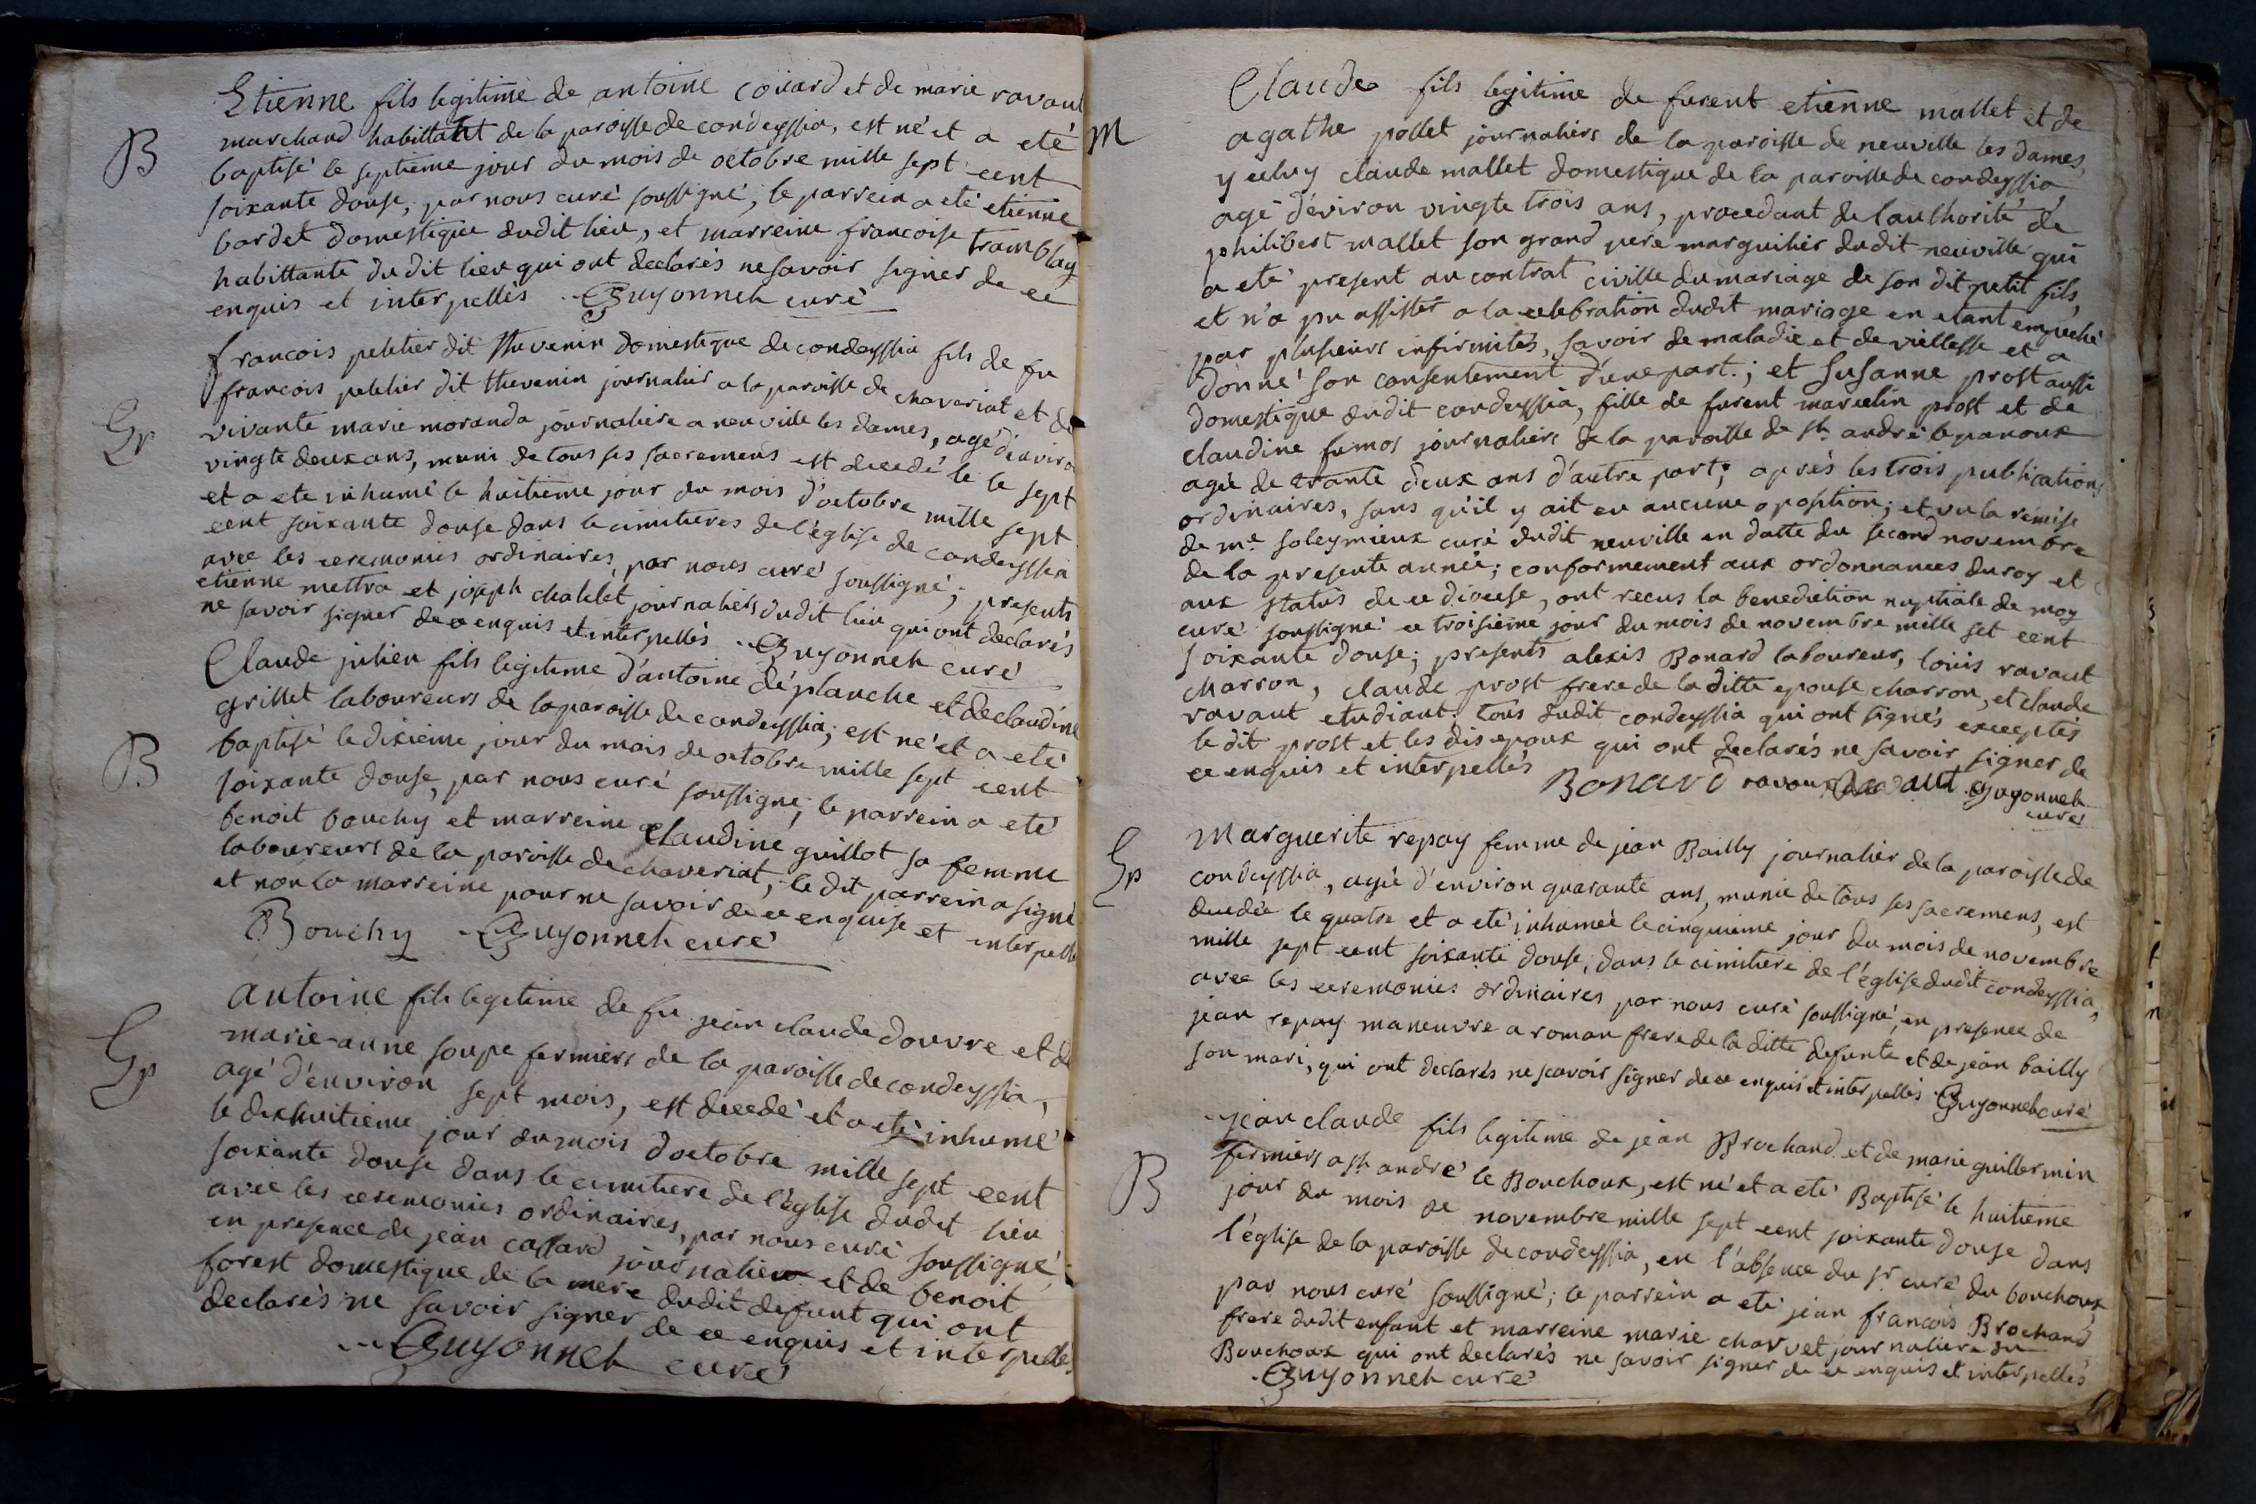 Etienne fils legitime de antoine coüard et de marie ravaut
B
marchand habittant de la paroisse de condeyssia, est né et a eté
baptisé le septieme jour du mois de octobre mille sept cent
soixante douse, par nous curé soussigné; le parrein a eté etienne
bardet domestique dudit lieu, et marreine francoise tramblay
habittante du dit lieu qui ont declarés ne savoir signer de ce
enquis et interpellés. Guyonneh curé
francois peletier dit thevenin domestique de condeyssia fils de fu
francois peletier dit thevenin journalier a la paroisse de chaveriat et de
Sp
vivante marie moranda journaliere a neuville les dames, agé d'enviro
vingte deux ans, muni de tous ses sacremens est decedé le le sept
et a ete inhumé le huitieme jour du mois d'octobre mille sept
cent soixante douse dans le cimitieres de l'église de condeyssia
avec les ceremonies ordinaires, par nous curé soussigné; presents
etienne mettra et joseph chatelet journaliers dudit lieu qui ont declarés
ne savoir signer de ce enquis et interpellés. Guyonneh curé
Claude julien fils legitime d'antoine déplanche et de claudine
grillet laboureurs de la paroisse de condeyssia; est né et a eté
B
baptisé le dixieme jour du mois de octobre mille sept cent
soixante douse, par nous curé soussigné; le parrein a eté
benoit bouchy et marreine claudine guillot sa femme
laboureurs de la paroisse de chaveriat; le dit parrein a signé
et non la marreine pour ne savoir de ce enquise et interpellé
Bouchy Guyonneh curé
antoine fils legitime de fu jean claude douvre et de
marie-anne soupe fermiers de la paroisse de condeyssia,
Sp
agé d'environ sept mois, est decedé et a eté inhumé
le dixhuitieme jour du mois d'octobre mille sept cent
soixante douse dans le cimitiere de l'église dudit lieu
avec les ceremonies ordinaires, par nous curé soussigné,
en presence de jean cassard journalier et de benoit
forest domestique de la mere dudit defunt qui ont
declarés ne savoir signer de ce enquis et interpellés
Guyonneh curé
Claude fils legitime de furent etienne mallet et de
M
agathe pollet journaliers de la paroisse de neuville les dames,
yceluy claude mallet domestique de la paroisse de condeyssia
agé d'éviron vingte trois ans, procedant de l'authorité de
philibert mallet son grand pere marguilier dudit neuville qui
a eté present au contrat civille du mariage de son dit petit fils,
et n'a pu assister a la celebration dudit mariage en etant empeché
par plusieurs infirmités, savoir de maladie et de viellesse et a
donné son consentement d'une part.; et Susanne prost aussi
domestique dudit condeyssia, fille de furent marcelin prost et de
claudine fumos journaliers de la paroisse de st. andré le panoux
agée de trante deux ans d'autre part; aprés les trois publications
ordinaires, sans qu'il y ait eu aucune oposition; et vu la remise
de me. soleymieux curé dudit neuville en datte du second novembre
de la presente année; conformement aux ordonnances du roy et
aux statuts de ce diocese, ont recus la benediction nuptiale de moy
curé soussigné ce troisieme jour du mois de novembre mille set cent
soixante douse; presents alexis Bonard laboureur, loüis ravaut
charron, claude prost frere de la ditte epouse charron, et claude
ravaut etudiant. tous dudit condeyssia qui ont signés exceptés
le dit prost et les dis epoux qui ont declarés ne savoir signer de
ce enquis et interpellés
Bonard ravaut ravaut Guyonneh
curé
Marguerite repay femme de jean Bailly journalier de la paroisse de
Sp
condeyssia, agée d'environ quarante ans, munie de tous ses sacremens, est
decedée le quatre et a eté inhumée le cinquieme jour du mois de novembre
mille sept cent soixante douse, dans le cimitiere de l'église dudit condeyssia,
avec les ceremonies ordinaires par nous curé soussigné, en presence de
jean repay maneuvre a roman frere de la ditte defunte et de jean bailly
son mari, qui ont declarés ne scavoir signer de ce enquis et interpellés. Guyonneh curé
jean claude fils legitime de jean Brochand et de marie guillermin
fermiers a st. andré le Bouchoux, est né et a eté Baptisé le huitieme
B
jour du mois de novembre mille sept cent soixante douse dans
l'église de la paroisse de condeyssia, en l'absence du sr curé du bouchoux
par nous curé soussigné; le parrein a eté jean francois Brochand
frere dudit enfant et marreine marie charvet journaliere du
Bouchoux qui ont declarés ne savoir signer de ce enquis et interpellés
Guyonneh curé